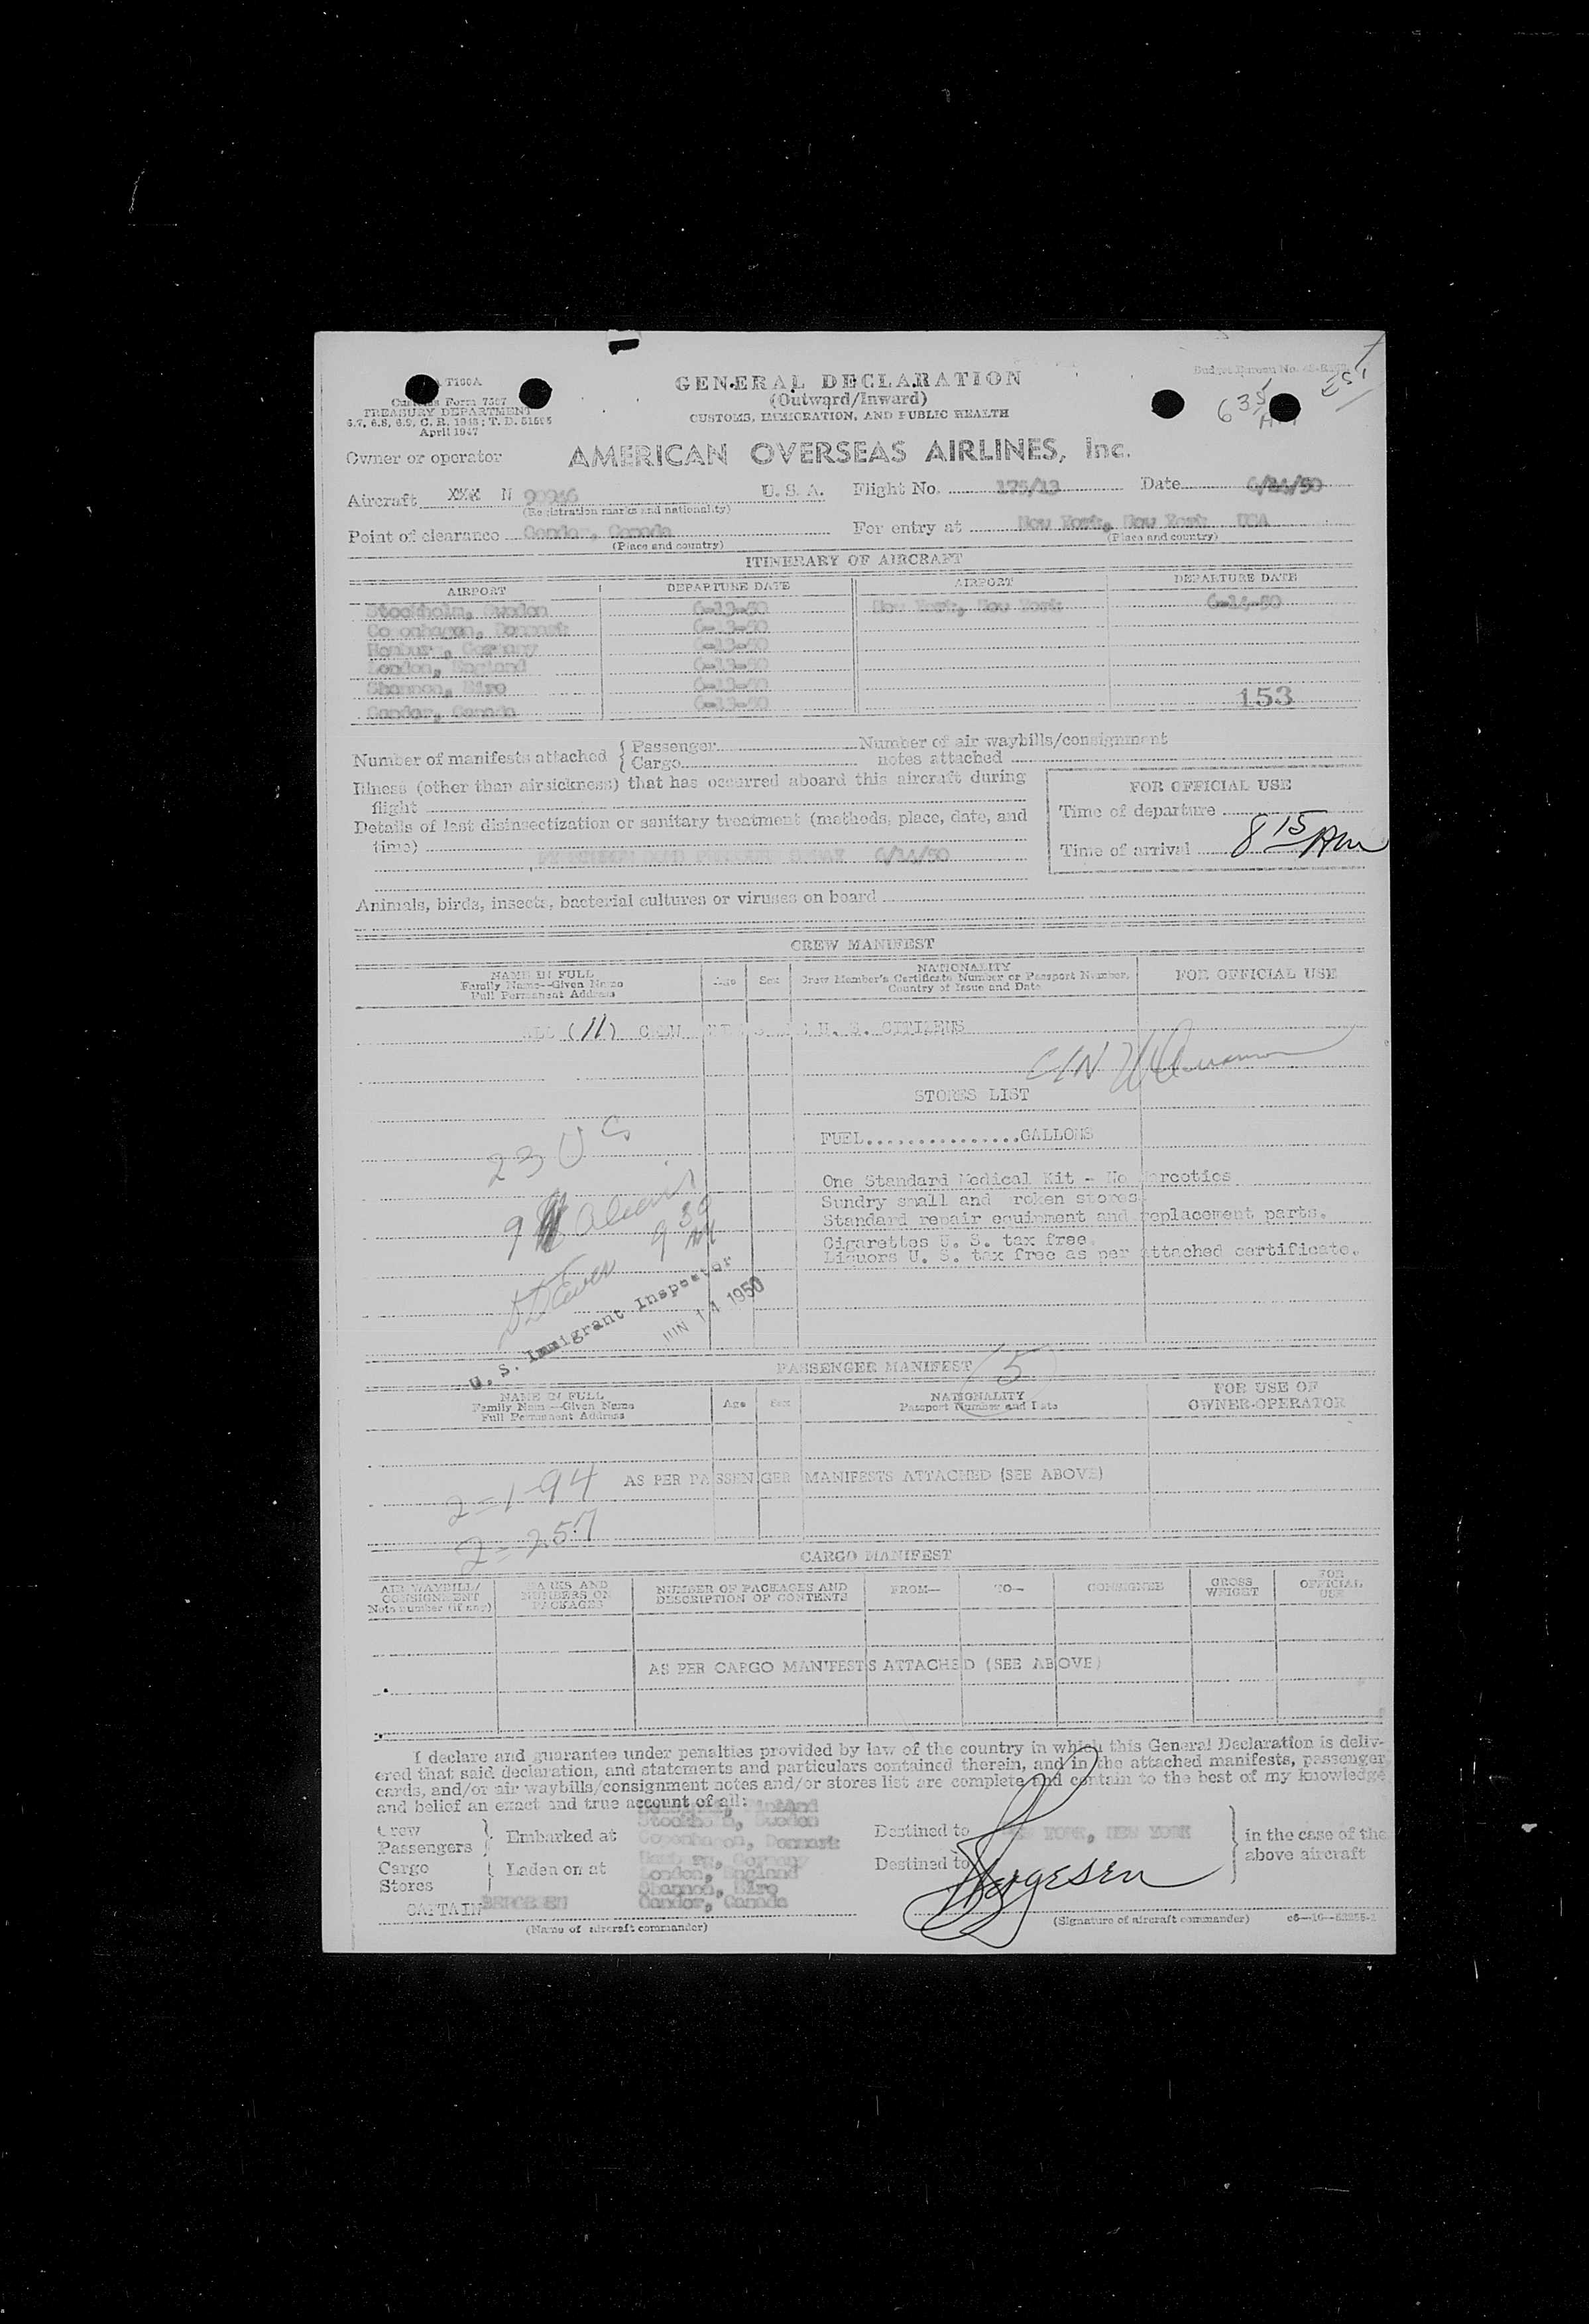 T100A
Customs Form 7507
TREASURY DEPARTMENT
6.7, 6.8, 6.9, C. R. 1943; T. D. 51505
April 1947
GENERAL DECLARATION
(Outward/Inward)
CUSTOMS, IMMIGRATION, AND PUBLIC HEALTH
Budget Bureau No.
6 35 AM EST
Owner or operator AMERICAN OVERSEAS AIRLINES, Inc.
Aircraft XXX N 90946 U. S. A. Flight No. 175/13 Date 6/14/50
(Registration marks and nationality)
Point of clearance Gander, Canada For entry at New York, New York USA
(Place and country) (Place and country)
ITINERARY OF AIRCRAFT
AIRPORT DEPARTURE DATE AIRPORT DEPARTURE DATE
Stockholm, Sweden 6-13-50 New York, New York 6-14-50
Copenhagen, Denmark 6-13-50
Hamburg, Germany 6-13-50
London, England 6-13-50
Shannon, Eire 6-13-50
Gander, Canada 6-13-50
153
Number of manifests attached { Passenger Number of air waybills/consignment
Cargo notes attached
Illness (other than airsickness) that has occurred aboard this aircraft during
flight
Details of last disinsectization or sanitary treatment (methods, place, date, and
time)
6/14/50
FOR OFFICIAL USE
Time of departure
Time of arrival 8 15 AM
Animals, birds, insects, bacterial cultures or viruses on board
CREW MANIFEST
NAME IN FULL
Family Name--Given Name
Full Permanent Address
Age Sex
NATIONALITY
Crew Member's Certificate Number or Passport Number,
Country of Issue and Date
FOR OFFICIAL USE
ALL (11) CREW U. S. CITIZENS
STORES LIST
FUEL...............GALLONS
23 US
One Standard Medical Kit - No Narcotics
Sundry small and broken stores
Standard repair equipment and replacement parts.
Cigarettes U. S. tax free.
Liquors U. S. tax free as per attached certificate.
9 Aliens
9 30 AM
U. S. Immigrant Inspector
JUN 14 1950
PASSENGER MANIFEST
5
NAME IN FULL
Family Name--Given Name
Full Permanent Address
Age Sex
NATIONALITY
Passport Number and Date
FOR USE OF
OWNER-OPERATOR
AS PER PASSENGER MANIFESTS ATTACHED (SEE ABOVE)
2-1-94
2-257
CARGO MANIFEST
AIR WAYBILL/
CONSIGNMENT
Note number (if any)
MARKS AND
NUMBERS ON
PACKAGES
NUMBER OF PACKAGES AND
DESCRIPTION OF CONTENTS
FROM— TO— CONSIGNEE
GROSS
WEIGHT
FOR
OFFICIAL
USE
AS PER CARGO MANIFESTS ATTACHED (SEE ABOVE)
I declare and guarantee under penalties provided by law of the country in which this General Declaration is deliv-
ered that said declaration, and statements and particulars contained therein, and in the attached manifests, passenger
cards, and/or air waybills/consignment notes and/or stores list are complete and contain to the best of my knowledge
and belief an exact and true account of all:
Finland
Stockholm, Sweden
Copenhagen, Denmark
Hamburg, Germany
London, England
Shannon, Eire
Gander, Canada
Crew
Passengers } Embarked at
Cargo
Stores } Laden on at
Destined to NEW YORK, NEW YORK
Destined to
in the case of the
above aircraft
CAPTAIN
(Name of aircraft commander)
(Signature of aircraft commander)